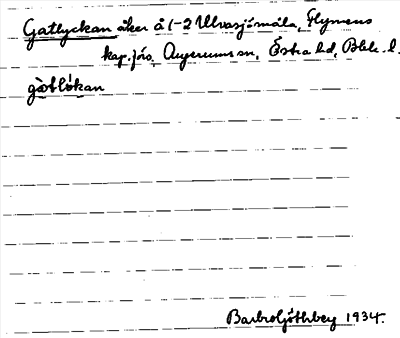 Gatlyckan åker å 1-2 Ulvasjömåla, Flymens
kap.förs. Augerums sn, Östra hd, Blek. l.
gàtlòkan
Barbro Göthberg 1934.